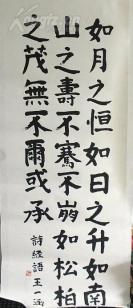 如月之恒如日之升如南
山之壽不騫不崩如松柏
之茂無不爾或承
詩經語王一涵